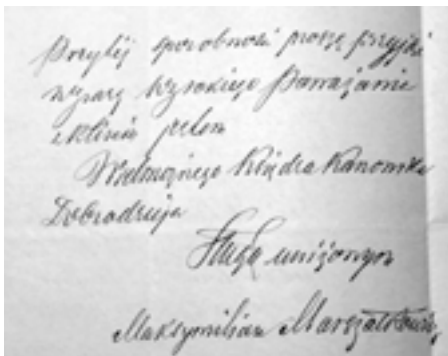 Przytej sposobności proszę przyjąć
wyrazy wysokiego Poważania
z którem jestem
Wielmożnego Księdza Kanonika
Dobrodzieja
Sługą uniżonym
Maksymilian Marszałkowicz